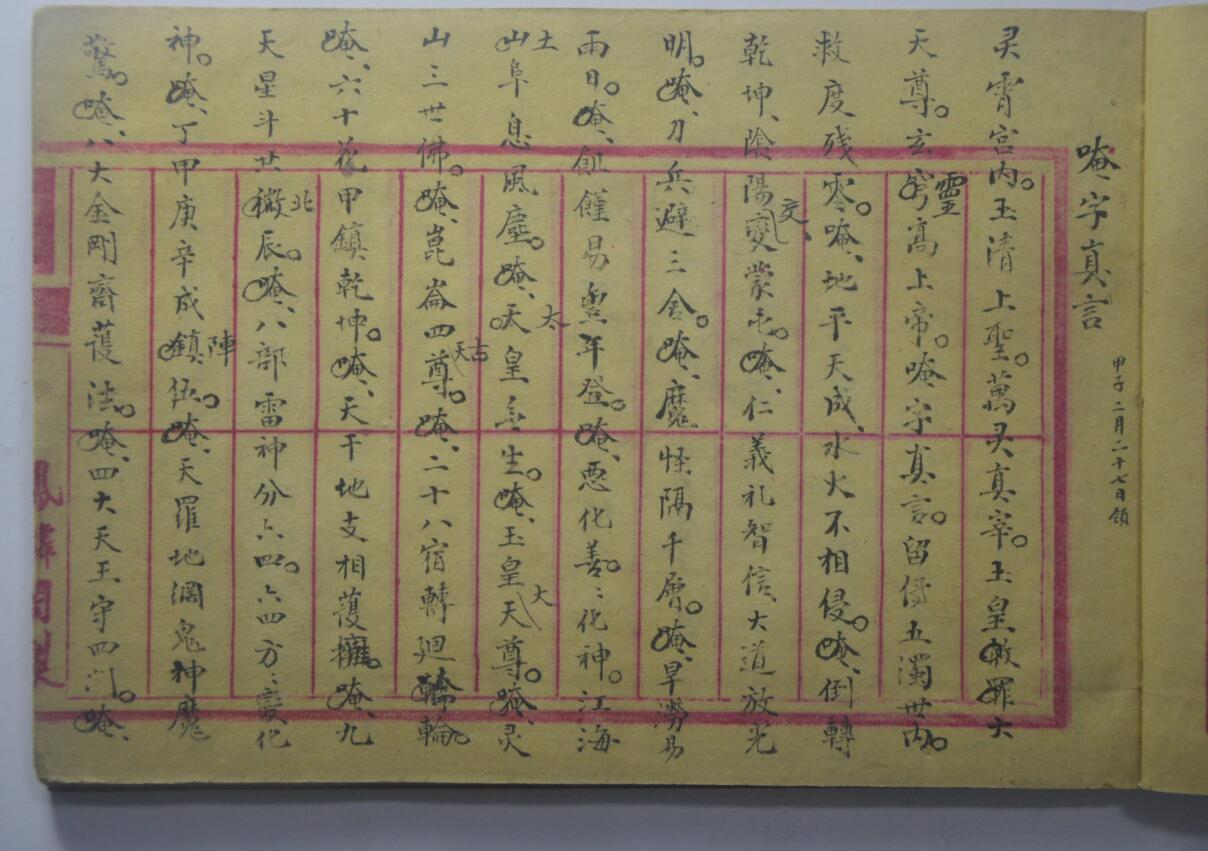 唵字真言
甲子二月二十七日領
灵霄宫内。玉清上聖。萬灵真宰。玉皇赦罪大
天尊。玄穹靈高上帝。唵字真言。留傳五濁世内。
救度残零。唵、地平天成、水火不相侵。唵、倒轉
乾坤、陰陽變交蒙屯。唵、仁義礼智信、大道放光
明。唵、刀兵避三舍。唵、魔怪隔千層。唵、旱澇易
雨日。唵、飢饉易豐年登。唵、悪化善。善化神。江海
山土阜息風塵。唵、天太皇無生。唵、玉皇天大尊。唵、灵
山三世佛。唵、崑崙四尊古天。唵、二十八宿轉廻輪。
唵、六十花甲鎮乾坤。唵、天干地支相護擁。唵、九
天星斗共北辰。唵、八部雷神分六四。六四方方變化
神。唵、丁甲庚辛成鎮陣伍。唵、天羅地網鬼神魔
驚。唵、八大金剛齊護法。唵、四大天王守四门。唵、